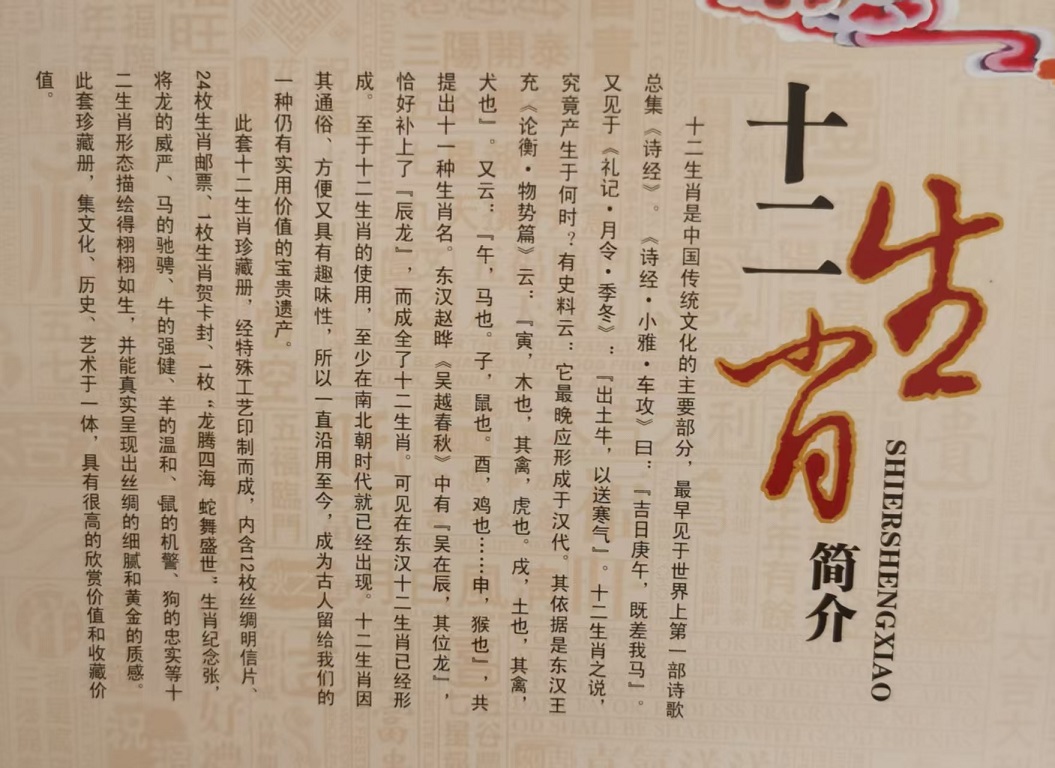 十二生肖简介
SHIERSHENGXIAO
十二生肖是中国传统文化的主要部分，最早见于世界上第一部诗歌
总集《诗经》。《诗经·小雅·车攻》曰：『吉日庚午，既差我马』。
又见于《礼记·月令·季冬》：『出土牛，以送寒气』。十二生肖之说，
究竟产生于何时？有史料云：它最晚应形成于汉代。其依据是东汉王
充《论衡·物势篇》云：『寅，木也，其禽，虎也。戌，土也，其禽，
犬也』。又云：『午，马也。子，鼠也。酉，鸡也……申，猴也』，共
提出十一种生肖名。东汉赵晔《吴越春秋》中有『吴在辰，其位龙』，
恰好补上了『辰龙』，而成全了十二生肖。可见在东汉十二生肖已经形
成。至于十二生肖的使用，至少在南北朝时代就已经出现。十二生肖因
其通俗、方便又具有趣味性，所以一直沿用至今，成为古人留给我们的
一种仍有实用价值的宝贵遗产。
此套十二生肖珍藏册，经特殊工艺印制而成，内含12枚丝绸明信片、
24枚生肖邮票、1枚生肖贺卡封、1枚“龙腾四海 蛇舞盛世”生肖纪念张，
将龙的威严、马的驰骋、牛的强健、羊的温和、鼠的机警、狗的忠实等十
二生肖形态描绘得栩栩如生，并能真实呈现出丝绸的细腻和黄金的质感。
此套珍藏册，集文化、历史、艺术于一体，具有很高的欣赏价值和收藏价
值。